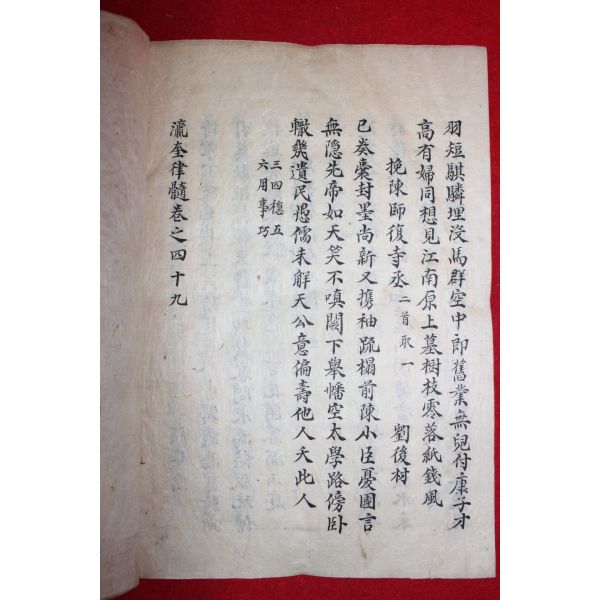 羽短騏驎埋沒馬群空中郎舊業無兒付康子才
高有婦同想見江南原上墓樹枝零落紙錢風
挽陳師復寺丞 二首取一 劉後村
已奏囊封墨尚新又携袖疏榻前陳小臣憂國言
無隠先帝如天笑不嗔闕下擧幡空太學路傍卧
轍幾遺民愚儒未解天公意偏壽他人夭此人
三四穏五
六用事巧
瀛奎律髓卷之四十九